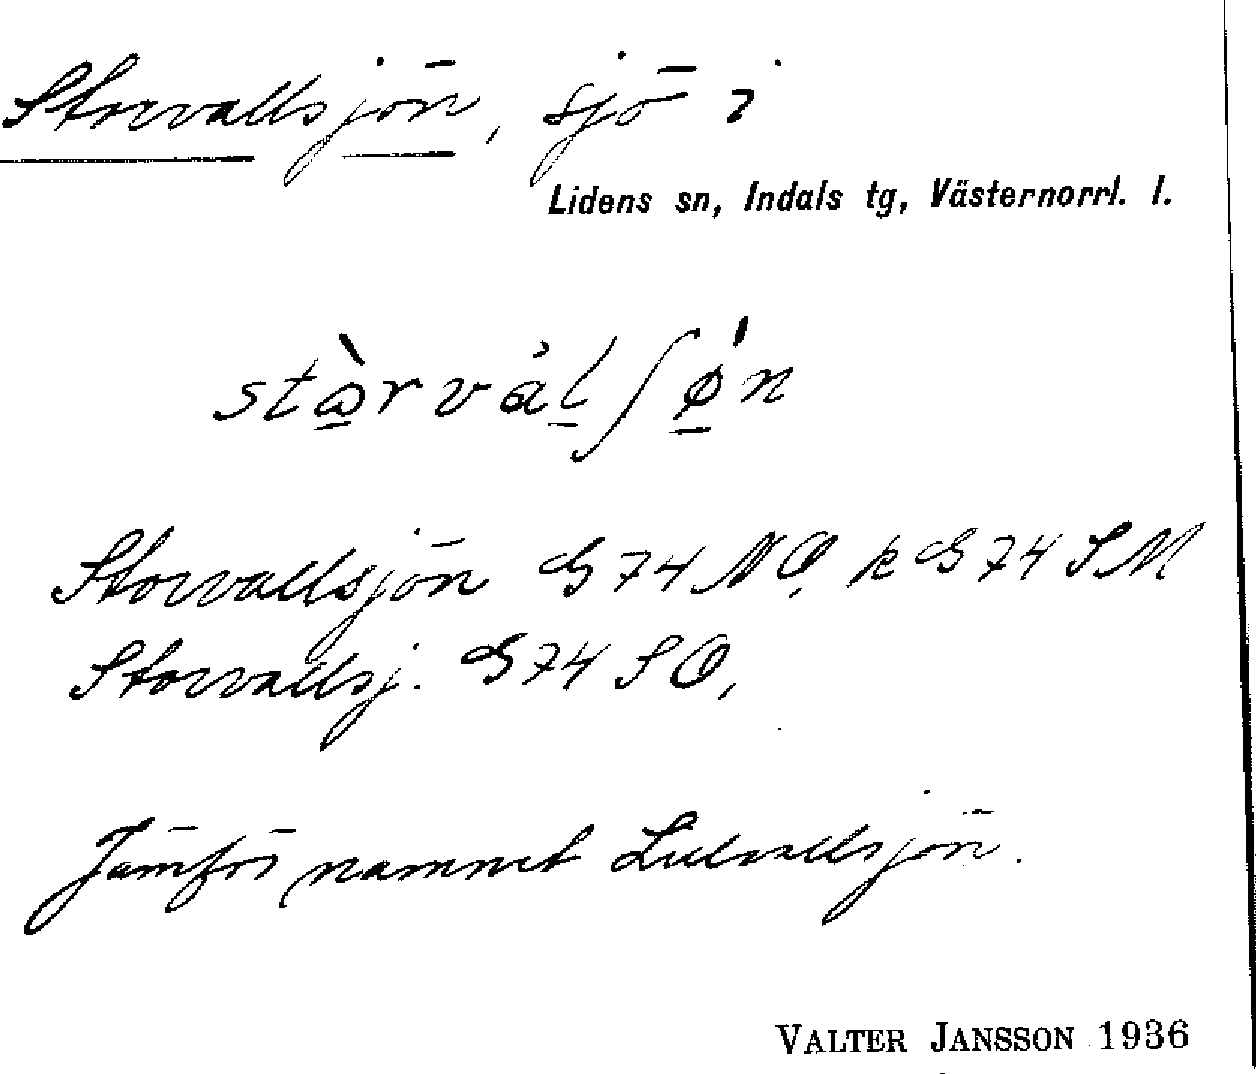 Storvallsjön, sjö i
Lidens sn, Indals tg, Västernorrl. l.
Storvallsjön G74 NO, k G74 SM
Storvallsj. G74 SO,
Jämför namnet Lillvallsjön.
VALTER JANSSON 1936